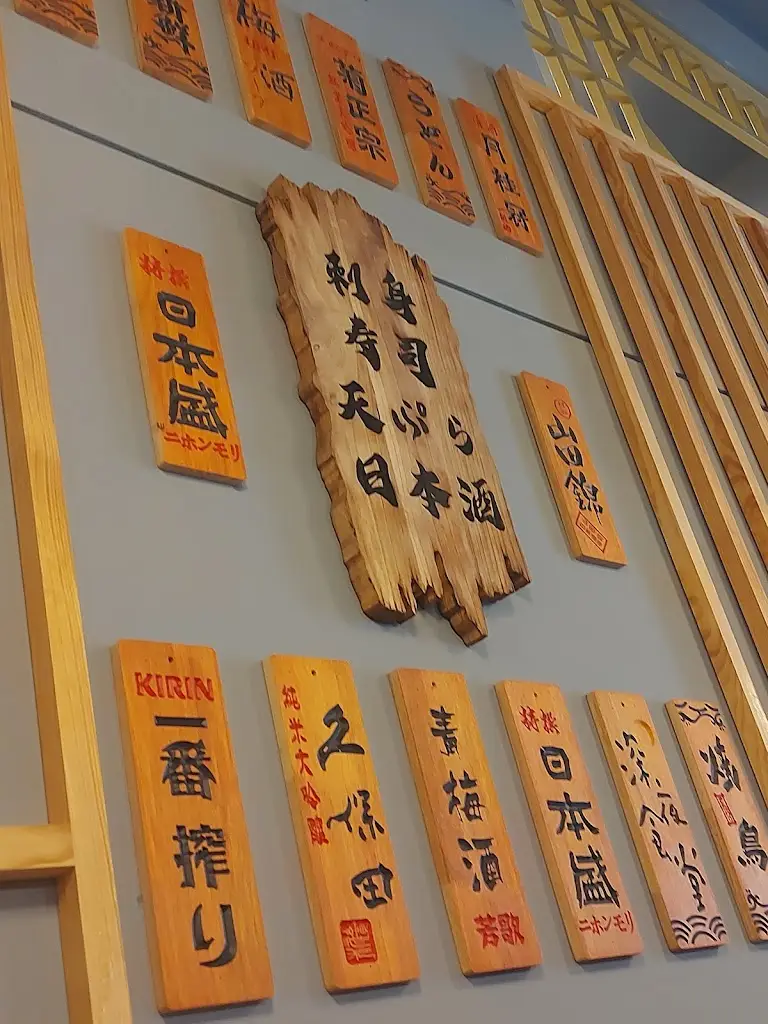 新鮮
梅酒
菊正宗
うどん
月桂冠
特撰
日本盛
ニホンモリ
刺身
寿司
天ぷら
日本酒
山田錦
KIRIN
一番搾り
純米大吟醸
久保田
青梅酒
若歌
特撰
日本盛
ニホンモリ
深夜食堂
焼鳥